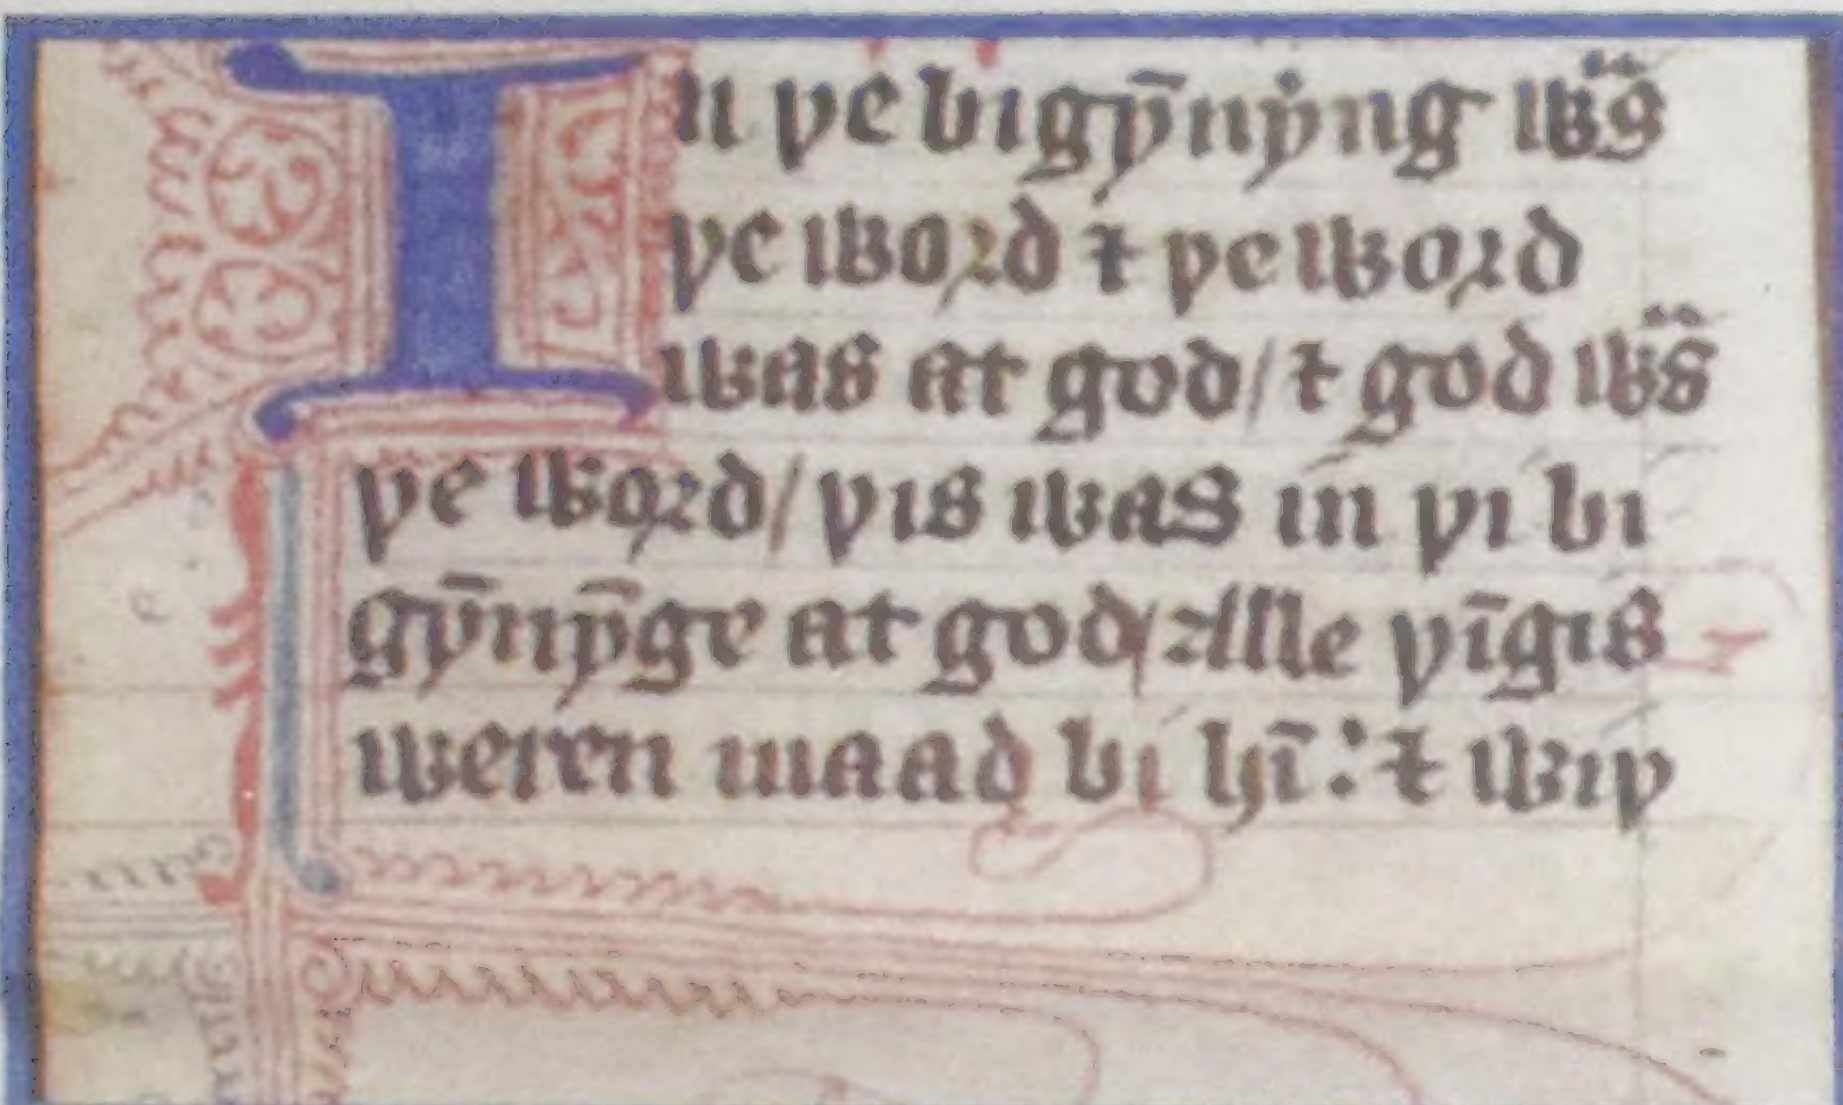 In þe bigyn̄nẏng wͣs
þe word ⁊ þe word
was at god/ ⁊ god wͣs
þe word/ þis was in þi bi
gyn̄nyn̄ge at god/ Alle þīgis
weren maad bi hī: ⁊ wiþ